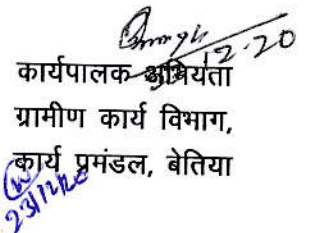 12.20
कार्यपालक अभियंता
ग्रामीण कार्य विभाग,
कार्य प्रमंडल, बेतिया
23/12/20